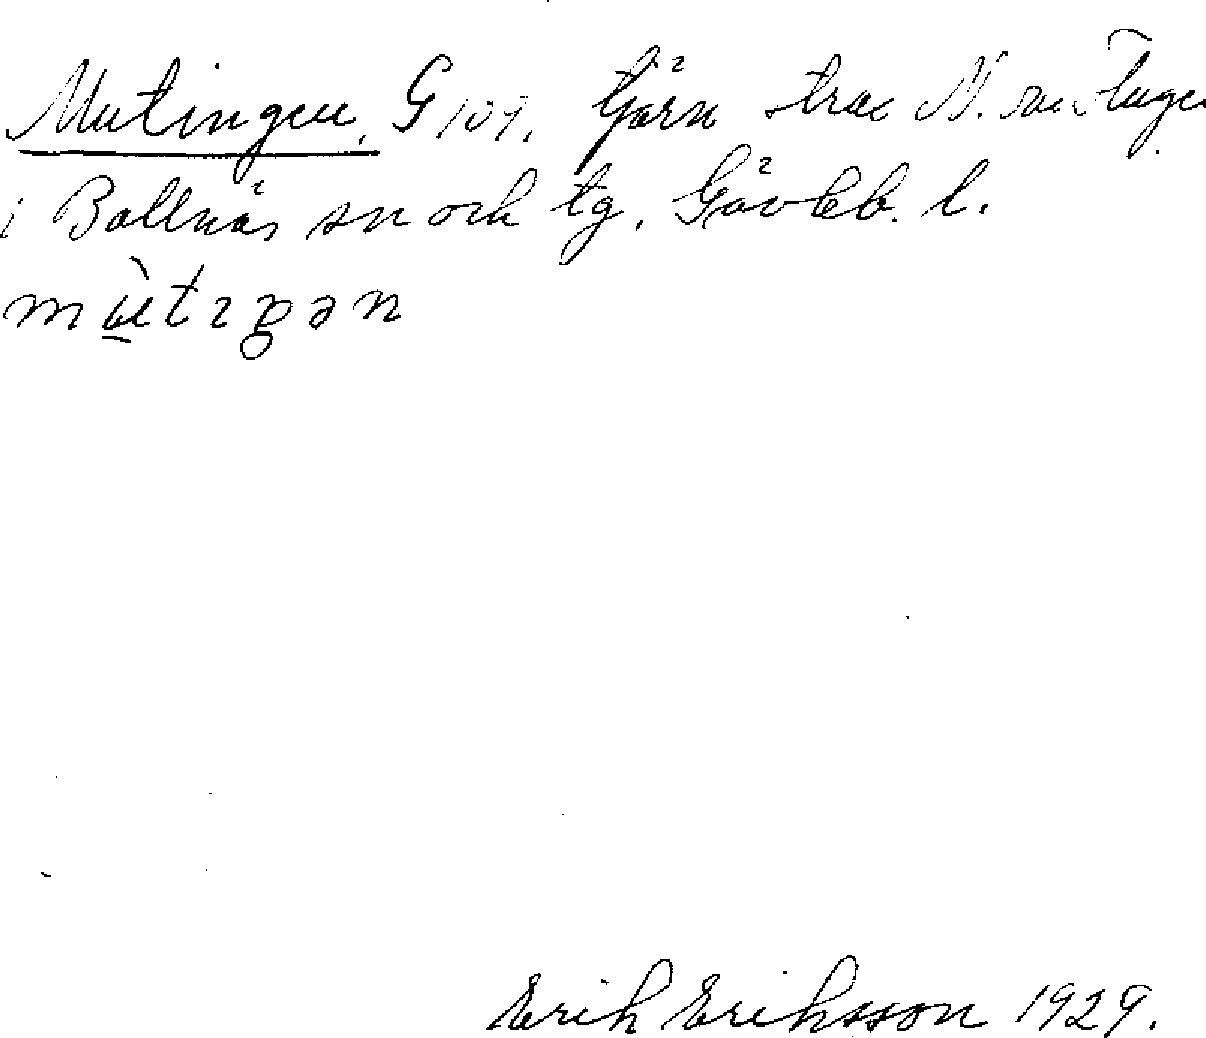 Mutingen. G 109. tjärn strax N. om Tuge
i Bollnäs sn och tg. Gävleb. l.
mùtıŋən
Erik Eriksson 1929.